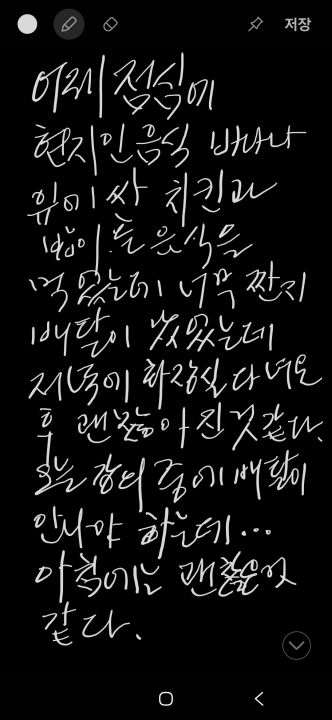 저장
어제 점심에
현지인 음식 바나나
잎에 싸 치킨과
밥이 든 음식을
먹었는데 너무 짠지
배탈이 났었는데
저녁에 화장실 다녀온
후 괜찮아 진것 같다.
오늘 강의 중에 배탈이
안나야 하는데...
아침에는 괜찮은것
같다.